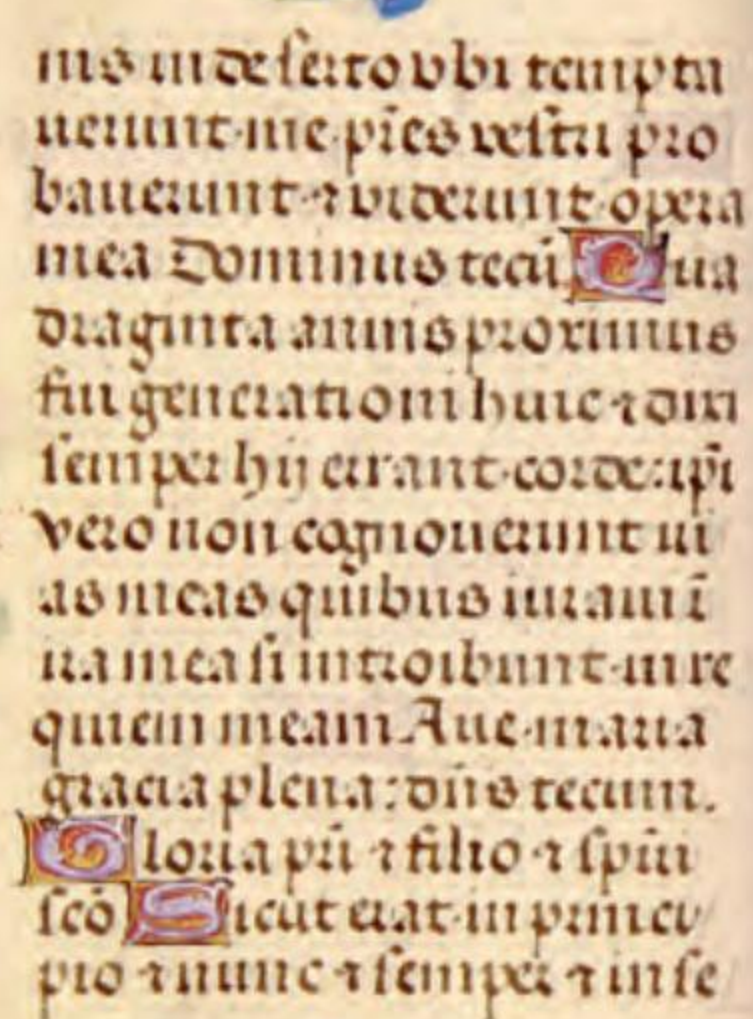 nis in deserto vbi tempta
uerunt me pr̄es vestri pro
bauerunt ⁊ viderunt opera
mea Dominus tecū Qua
draginta annis proximus
fui generationi huic ⁊ dixi
semper hij errant corde: ip̄i
vero non cognouerunt ui
as meas quibus iuraui ī
ira mea si introibunt in re
quiem meam Aue maria
gracia plena: dn̄s tecum.
Gloria pr̄i ⁊ filio ⁊ spūi
scō Sicut erat in princi
pio ⁊ nunc ⁊ semper ⁊ in se